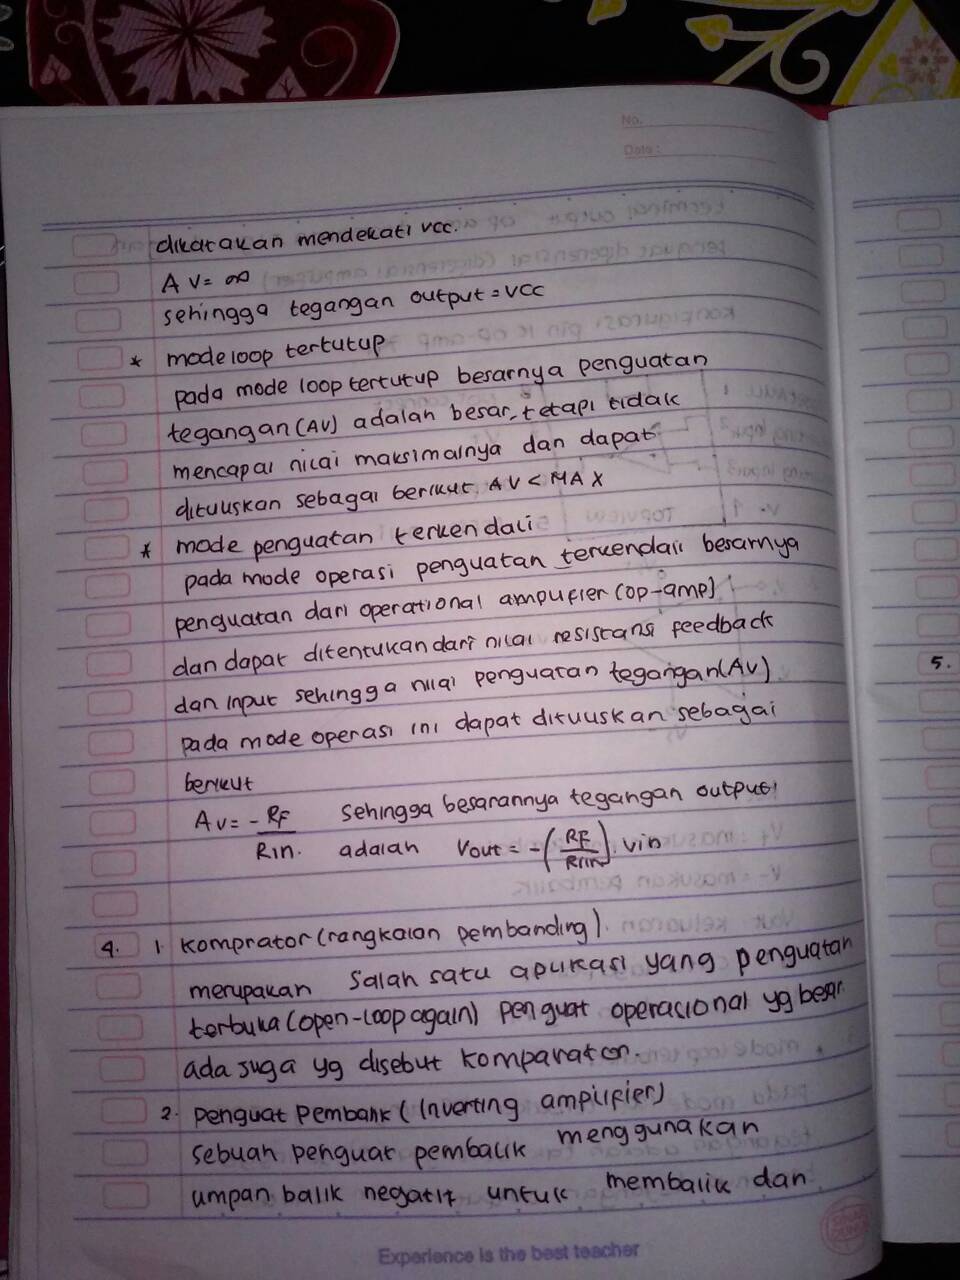 No.
Date:
dikatakan mendekati vcc.
AV= ∞
sehingga tegangan output = VCC
* mode loop tertutup
pada mode loop tertutup besarnya penguatan
tegangan (AV) adalah besar, tetapi tidak
mencapai nilai maksimalnya dan dapat
dituliskan sebagai berikut AV < MAX
* mode penguatan terkendali
pada mode operasi penguatan terkendali besarnya
penguatan dari operational amplifier (op-amp)
dan dapat ditentukan dari nilai resistansi feedback
dan input sehingga nilai penguatan tegangan (AV)
pada mode operasi ini dapat dituliskan sebagai
berikut
AV = - RF / Rin. sehingga besarannya tegangan output
adalah Vout = -(RF / Rin). vin
4. 1. Komprator (rangkaian pembanding).
merupakan salah satu aplikasi yang penguatan
terbuka (open-loop again) penguat operasional yg besar
ada juga yg disebut komparator.
2. Penguat Pembalik (Inverting amplifier)
sebuah penguat pembalik menggunakan
umpan balik negatif untuk membalik dan
Experience is the best teacher
5.